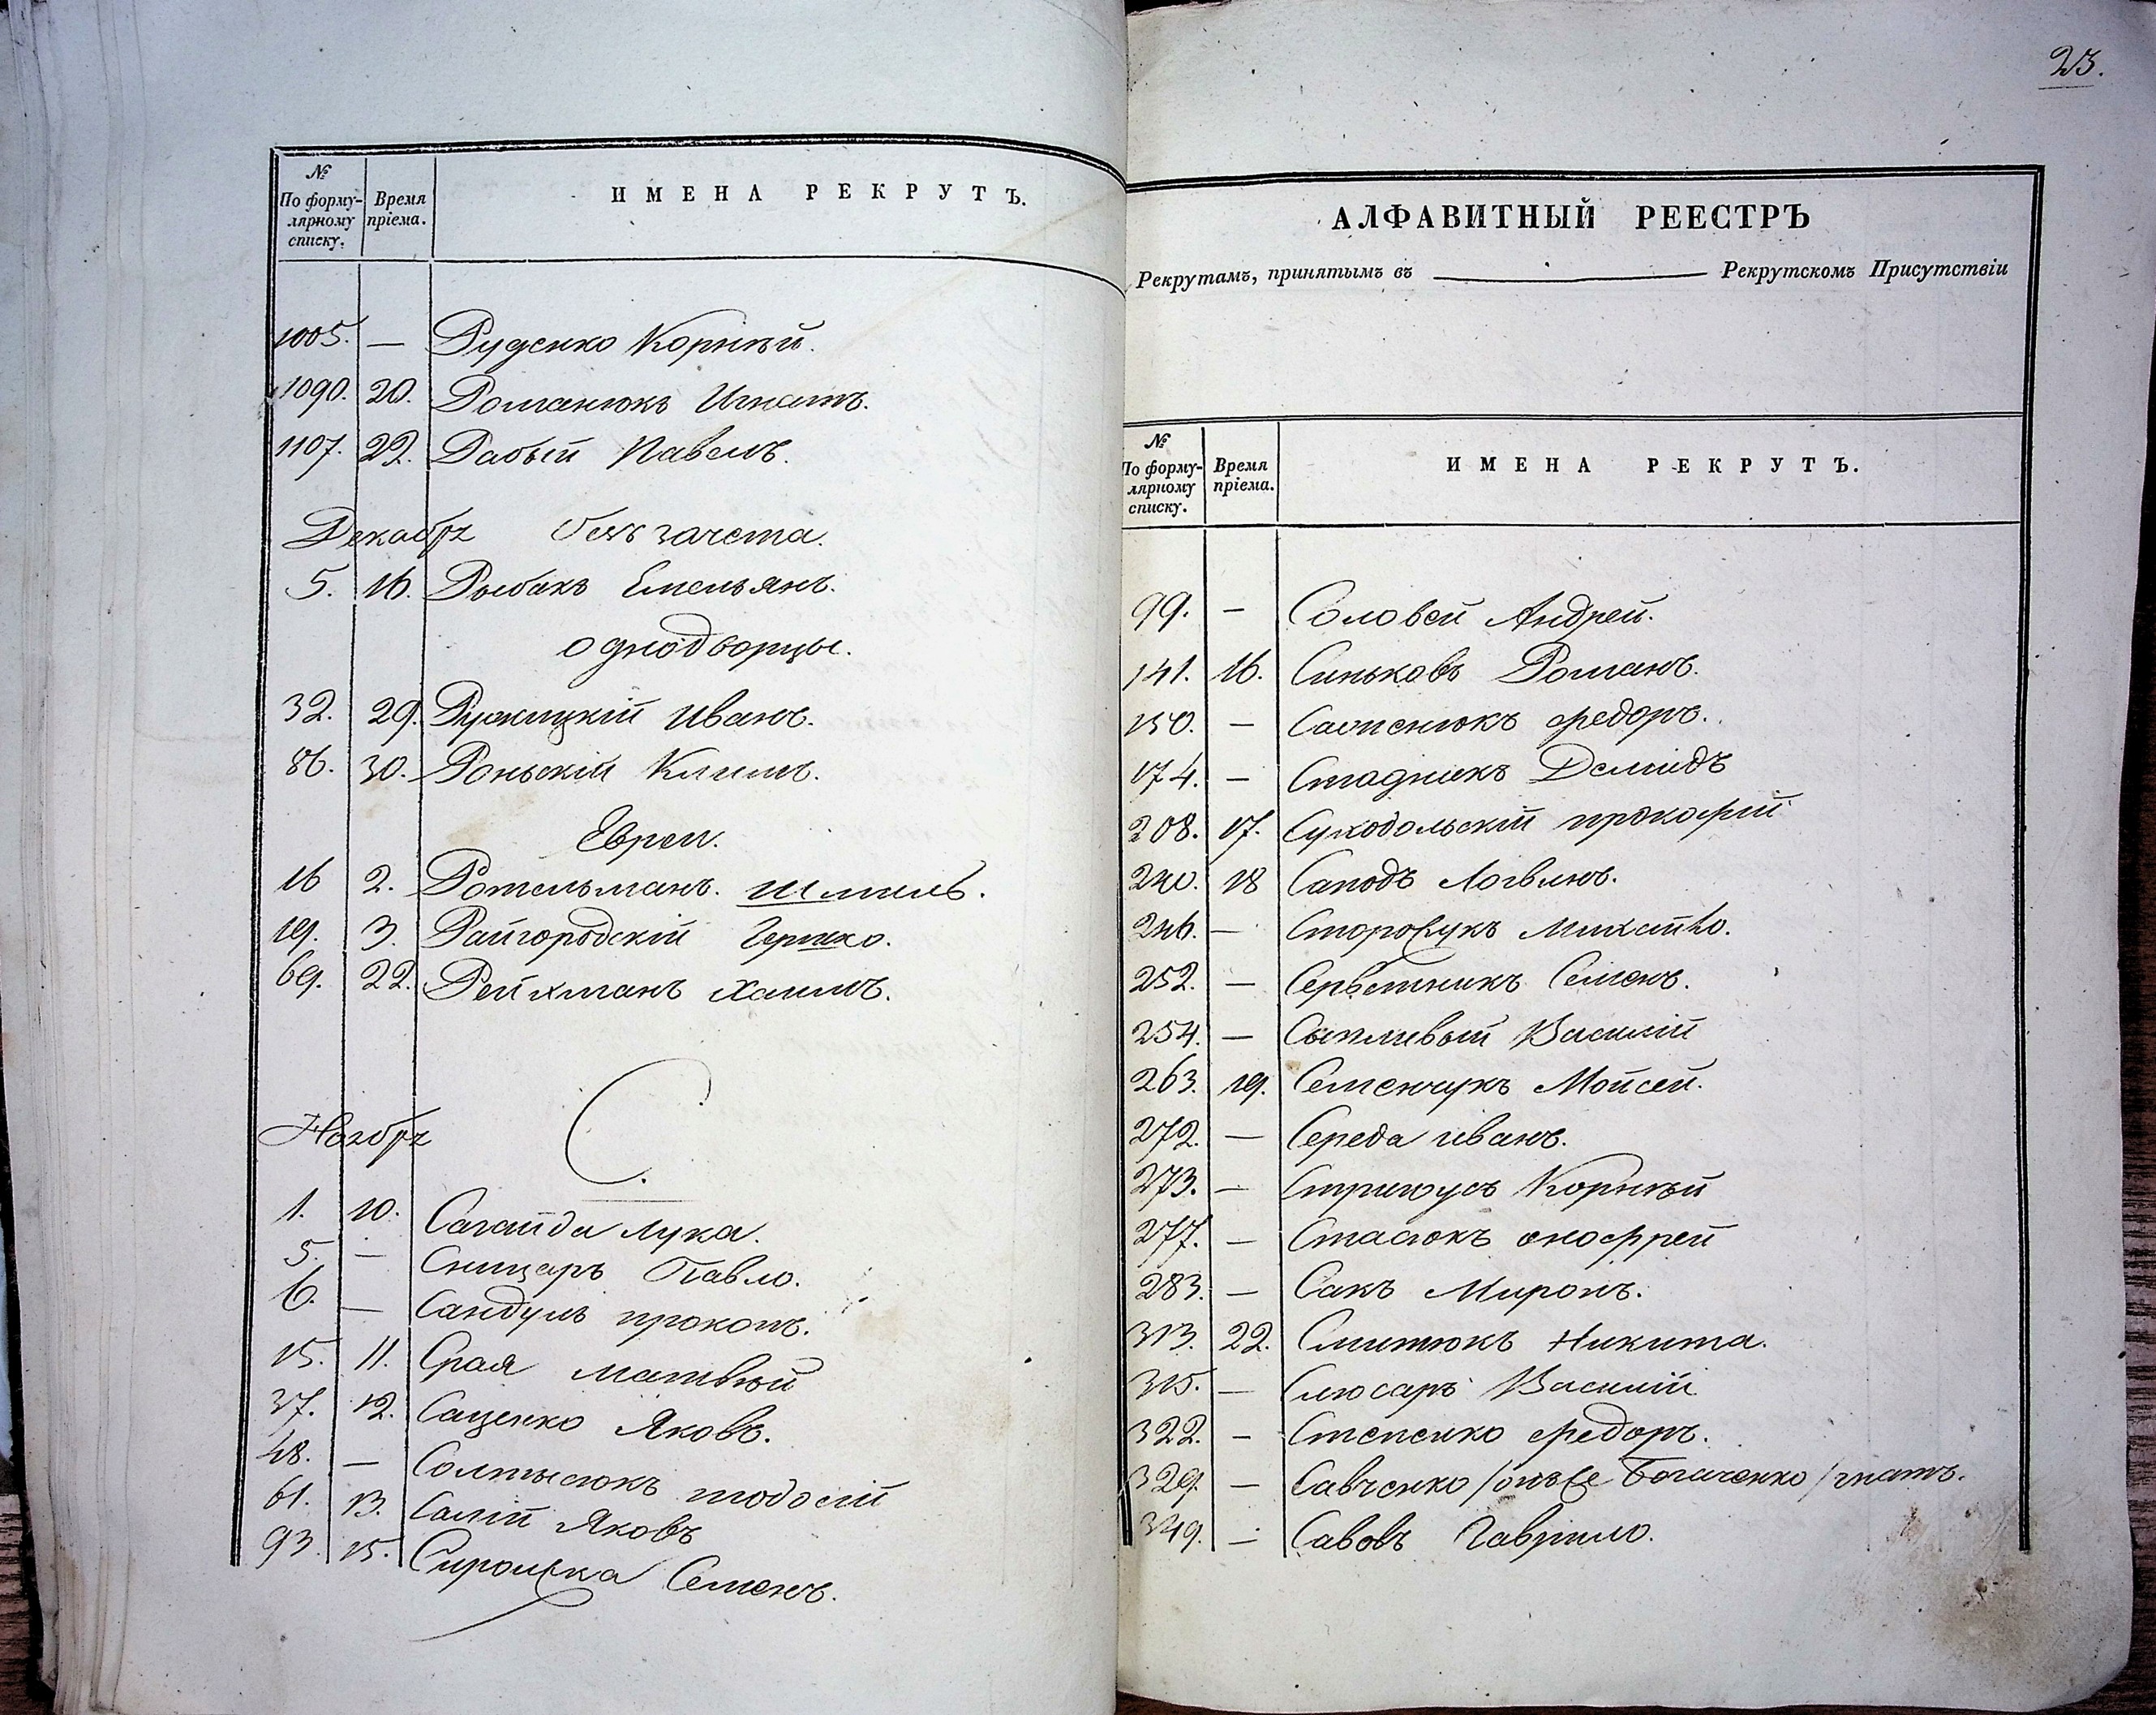 №
По форму-
лярному
списку.
Время
пріема.
ИМЕНА РЕКРУТЪ.
1005. — Руденко Корнѣй.
1090. 20. Романюкъ Игнатъ.
1107. 22. Рабый Павелъ.
Декабрь Безъ зачета.
5. 16. Рыбакъ Емельянъ.
однодворцы.
32. 29. Ружицкій Иванъ.
86. 30. Роньскій Климъ.
Евреи.
16 2. Ротельманъ. Шмиль.
19. 3. Райгородскій Гершко.
69. 22. Рейхманъ Хаимъ.
С.
Ноябрь
1. 10. Сагайда Лука.
5. — Сницаръ Павло.
6. — Сандулъ прокопъ.
15. 11. Срая матвѣй
37. 12. Саценко Яковъ.
48. — Солтысюкъ тодосій
61. 13. Салій Яковъ
93. 15. Сиротка Семенъ.
23.
АЛФАВИТНЫЙ РЕЕСТРЪ
Рекрутамъ, принятымъ въ Рекрутскомъ Присутствіи
№
По форму-
лярному
списку.
Время
пріема.
ИМЕНА РЕКРУТЪ.
99. — Соловей Андрей.
141. 16. Синьковъ Романъ.
150. — федоръ.
174. — Стадникъ Демидъ
208. 17. Суходольскій прокофій
240. 18 Саподъ Логвинъ.
246. — Сторожукъ Михайло.
252. — Серветникъ Семенъ.
254. — Сыпливый Василій
263. 19. Семенчукъ Мойсей.
272. — Середа иванъ.
273. — Корнѣй
277. — Стасюкъ онофрей
283. — Сакъ Миронъ.
313. 22. Смитюкъ Никита.
315. — Слюсаръ Василій
322. — Степенко федоръ.
329. — Савченко /онъ же Богаченко/ гнатъ.
349. — Савовъ Гаврило.